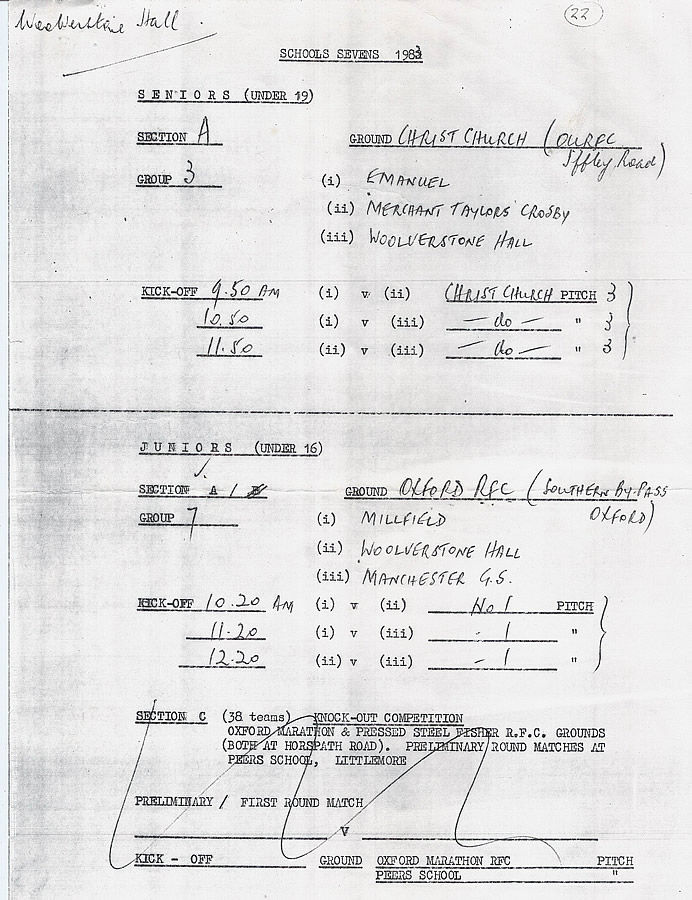 Woolverstone Hall.
22
SCHOOLS SEVENS 1983
SENIORS (UNDER 19)
SECTION A GROUND CHRIST CHURCH (OURFC
Iffley Road)
GROUP 3 (i) EMANUEL
(ii) MERCHANT TAYLORS' CROSBY
(iii) WOOLVERSTONE HALL
KICK-OFF 9.50 AM (i) v (ii) CHRIST CHURCH PITCH 3
10.50 (i) v (iii) — do — " 3
11.50 (ii) v (iii) — do — " 3
JUNIORS (UNDER 16)
SECTION A / B GROUND OXFORD RFC (SOUTHERN BY-PASS
GROUP 7 (i) MILLFIELD OXFORD)
(ii) WOOLVERSTONE HALL
(iii) MANCHESTER G.S.
KICK-OFF 10.20 AM (i) v (ii) No 1 PITCH
11.20 (i) v (iii) - 1 "
12.20 (ii) v (iii) - 1 "
SECTION C (38 teams) KNOCK-OUT COMPETITION
OXFORD MARATHON & PRESSED STEEL FISHER R.F.C. GROUNDS
(BOTH AT HORSPATH ROAD). PRELIMINARY ROUND MATCHES AT
PEERS SCHOOL, LITTLEMORE
PRELIMINARY / FIRST ROUND MATCH
V
KICK - OFF GROUND OXFORD MARATHON RFC PITCH
PEERS SCHOOL "